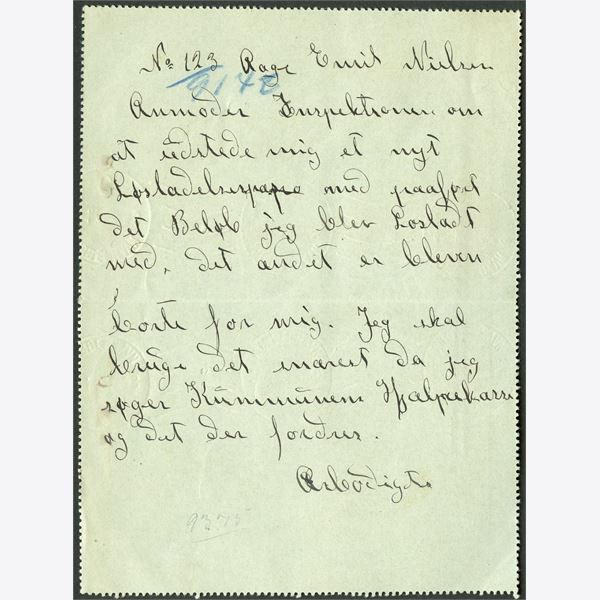 No 123 Aage Emil Nielsen
9148
Anmoder Inspektionen om
at üdstede mig et nyt
Løsladelsespape med paaført
det Beløb jeg blev Løsladt
med, det andet er bleven
borte for mig. Jeg skal
bruge det snarest da jeg
søger Kümmünens Hjælpekasse
og det der fordres.
Ærbødigt
9375